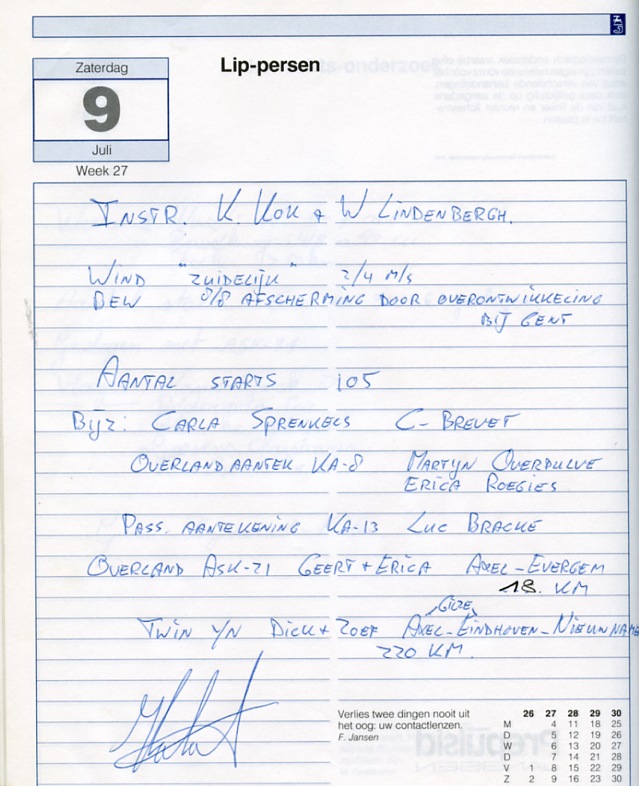 Zaterdag
9
Juli
Week 27
Lip-persen
INSTR. K. KOK + W LINDENBERGH.
WIND "ZUIDELIJK" 2/4 M/S
BEW 8/8 AFSCHERMING DOOR OVERONTWIKKELING
BIJ GENT
AANTAL STARTS 105
Bijz: CARLA SPRENKELS C-BREVET
OVERLAND AANTEK KA-8 MARTYN OVERDULVE
ERICA ROEGIES
PASS. AANTEKENING KA-13 LUC BRACKE
OVERLAND ASK-21 GEERT + ERICA AXEL-EVERGEM
18. KM
GILZE
TWIN YN DICK + ZOEF AXEL-EINDHOVEN-NIEUWNAME
220 KM.
Verlies twee dingen nooit uit
het oog: uw contactlenzen.
F. Jansen
26 27 28 29 30
M 4 11 18 25
D 5 12 19 26
W 6 13 20 27
D 7 14 21 28
V 1 8 15 22 29
Z 2 9 16 23 30